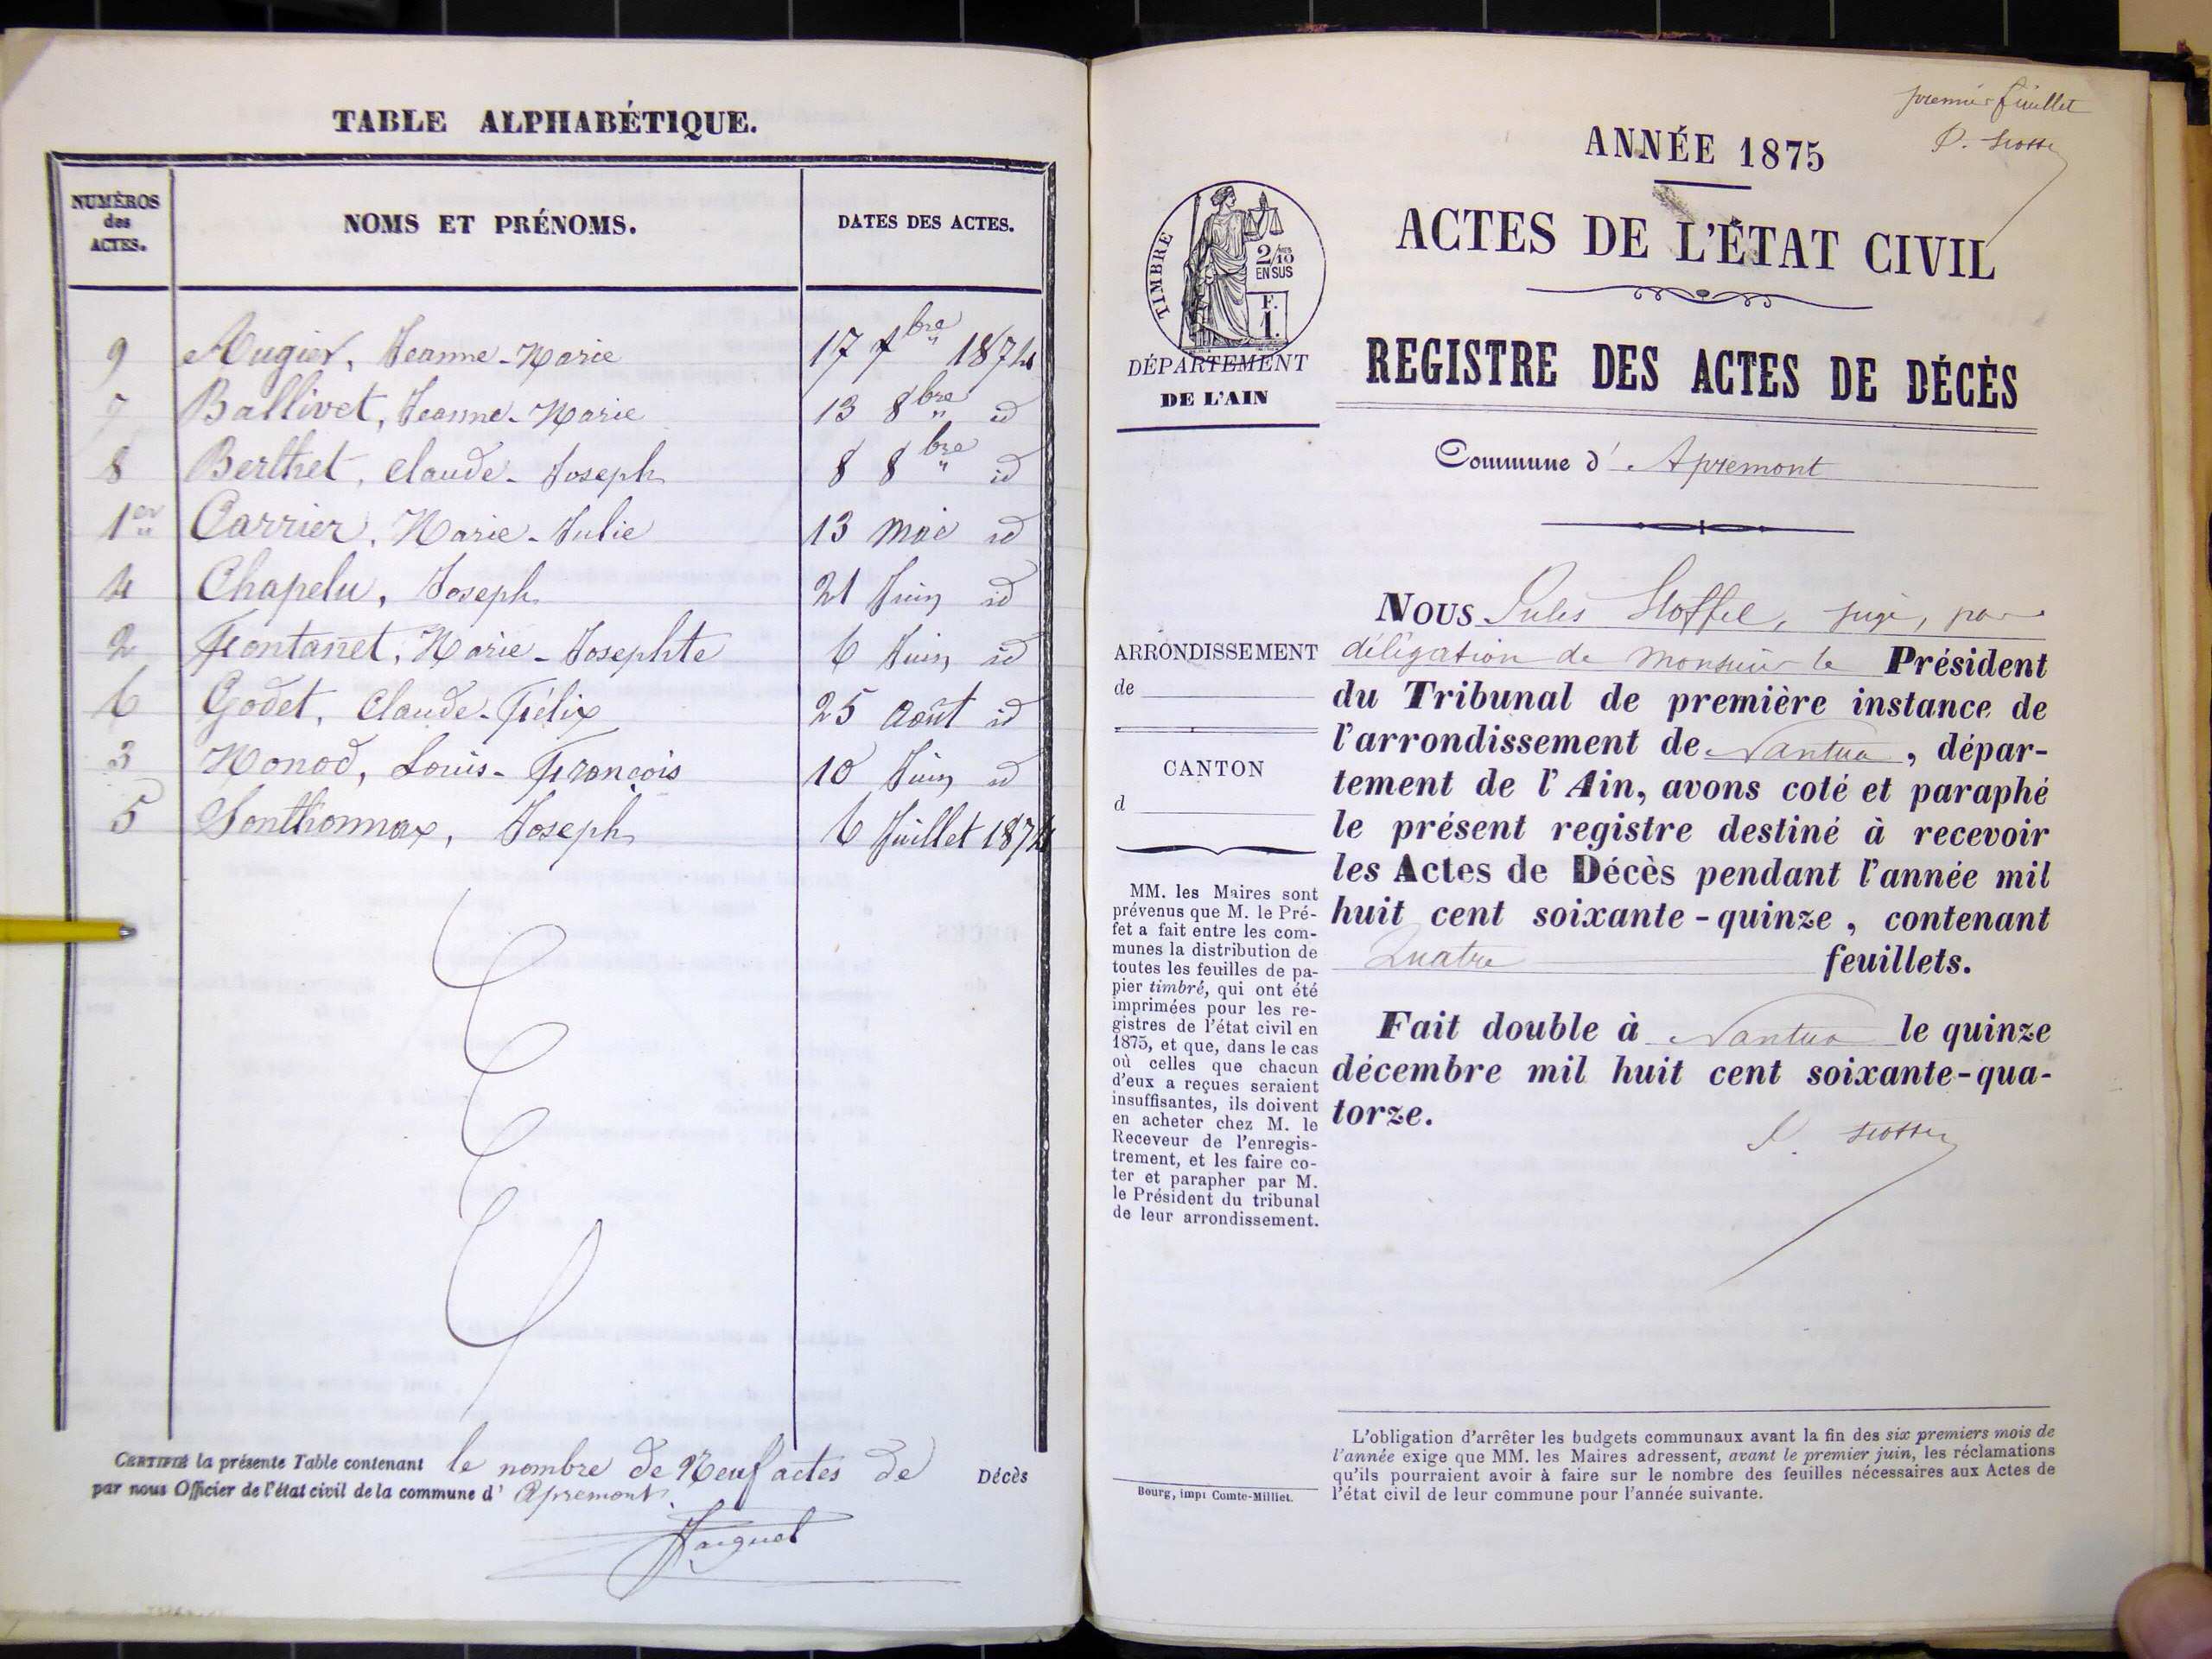 TABLE ALPHABÉTIQUE.
NUMÉROS des ACTES. NOMS ET PRÉNOMS. DATES DES ACTES.
9 Augier, Jeanne-Marie 17 7bre 1874
7 Ballivet, Jeanne-Marie 13 8bre id
8 Berthet, Claude-Joseph 8 8bre id
1er Carrier, Marie-Julie 13 Mai id
4 Chapelu, Joseph 21 Juin id
2 Fontanet, Marie-Josephte 6 Juin id
6 Godet, Claude-Félix 25 Août id
3 Monod, Louis-François 10 Juin id
5 Sonthonnax, Joseph 6 Juillet 1874
CERTIFIÉ la présente Table contenant le nombre de Neuf actes de Décès
par nous Officier de l'état civil de la commune d' Apremont.
premier feuillet
ANNÉE 1875
ACTES DE L'ÉTAT CIVIL
TIMBRE
2/10
EN SUS
F.
1.
DÉPARTEMENT
DE L'AIN
REGISTRE DES ACTES DE DÉCÈS
Commune d' Apremont
ARRONDISSEMENT
de
CANTON
d
MM. les Maires sont
prévenus que M. le Pré-
fet a fait entre les com-
munes la distribution de
toutes les feuilles de pa-
pier timbré, qui ont été
imprimées pour les re-
gistres de l'état civil en
1875, et que, dans le cas
où celles que chacun
d'eux a reçues seraient
insuffisantes, ils doivent
en acheter chez M. le
Receveur de l'enregis-
trement, et les faire co-
ter et parapher par M.
le Président du tribunal
de leur arrondissement.
Bourg, impr Comte-Milliet.
NOUS Jules Stoffel, juge, par
délégation de Monsieur le Président
du Tribunal de première instance de
l'arrondissement de Nantua, dépar-
tement de l'Ain, avons coté et paraphé
le présent registre destiné à recevoir
les Actes de Décès pendant l'année mil
huit cent soixante-quinze, contenant
Quatre feuillets.
Fait double à Nantua le quinze
décembre mil huit cent soixante-qua-
torze.
L'obligation d'arrêter les budgets communaux avant la fin des six premiers mois de
l'année exige que MM. les Maires adressent, avant le premier juin, les réclamations
qu'ils pourraient avoir à faire sur le nombre des feuilles nécessaires aux Actes de
l'état civil de leur commune pour l'année suivante.